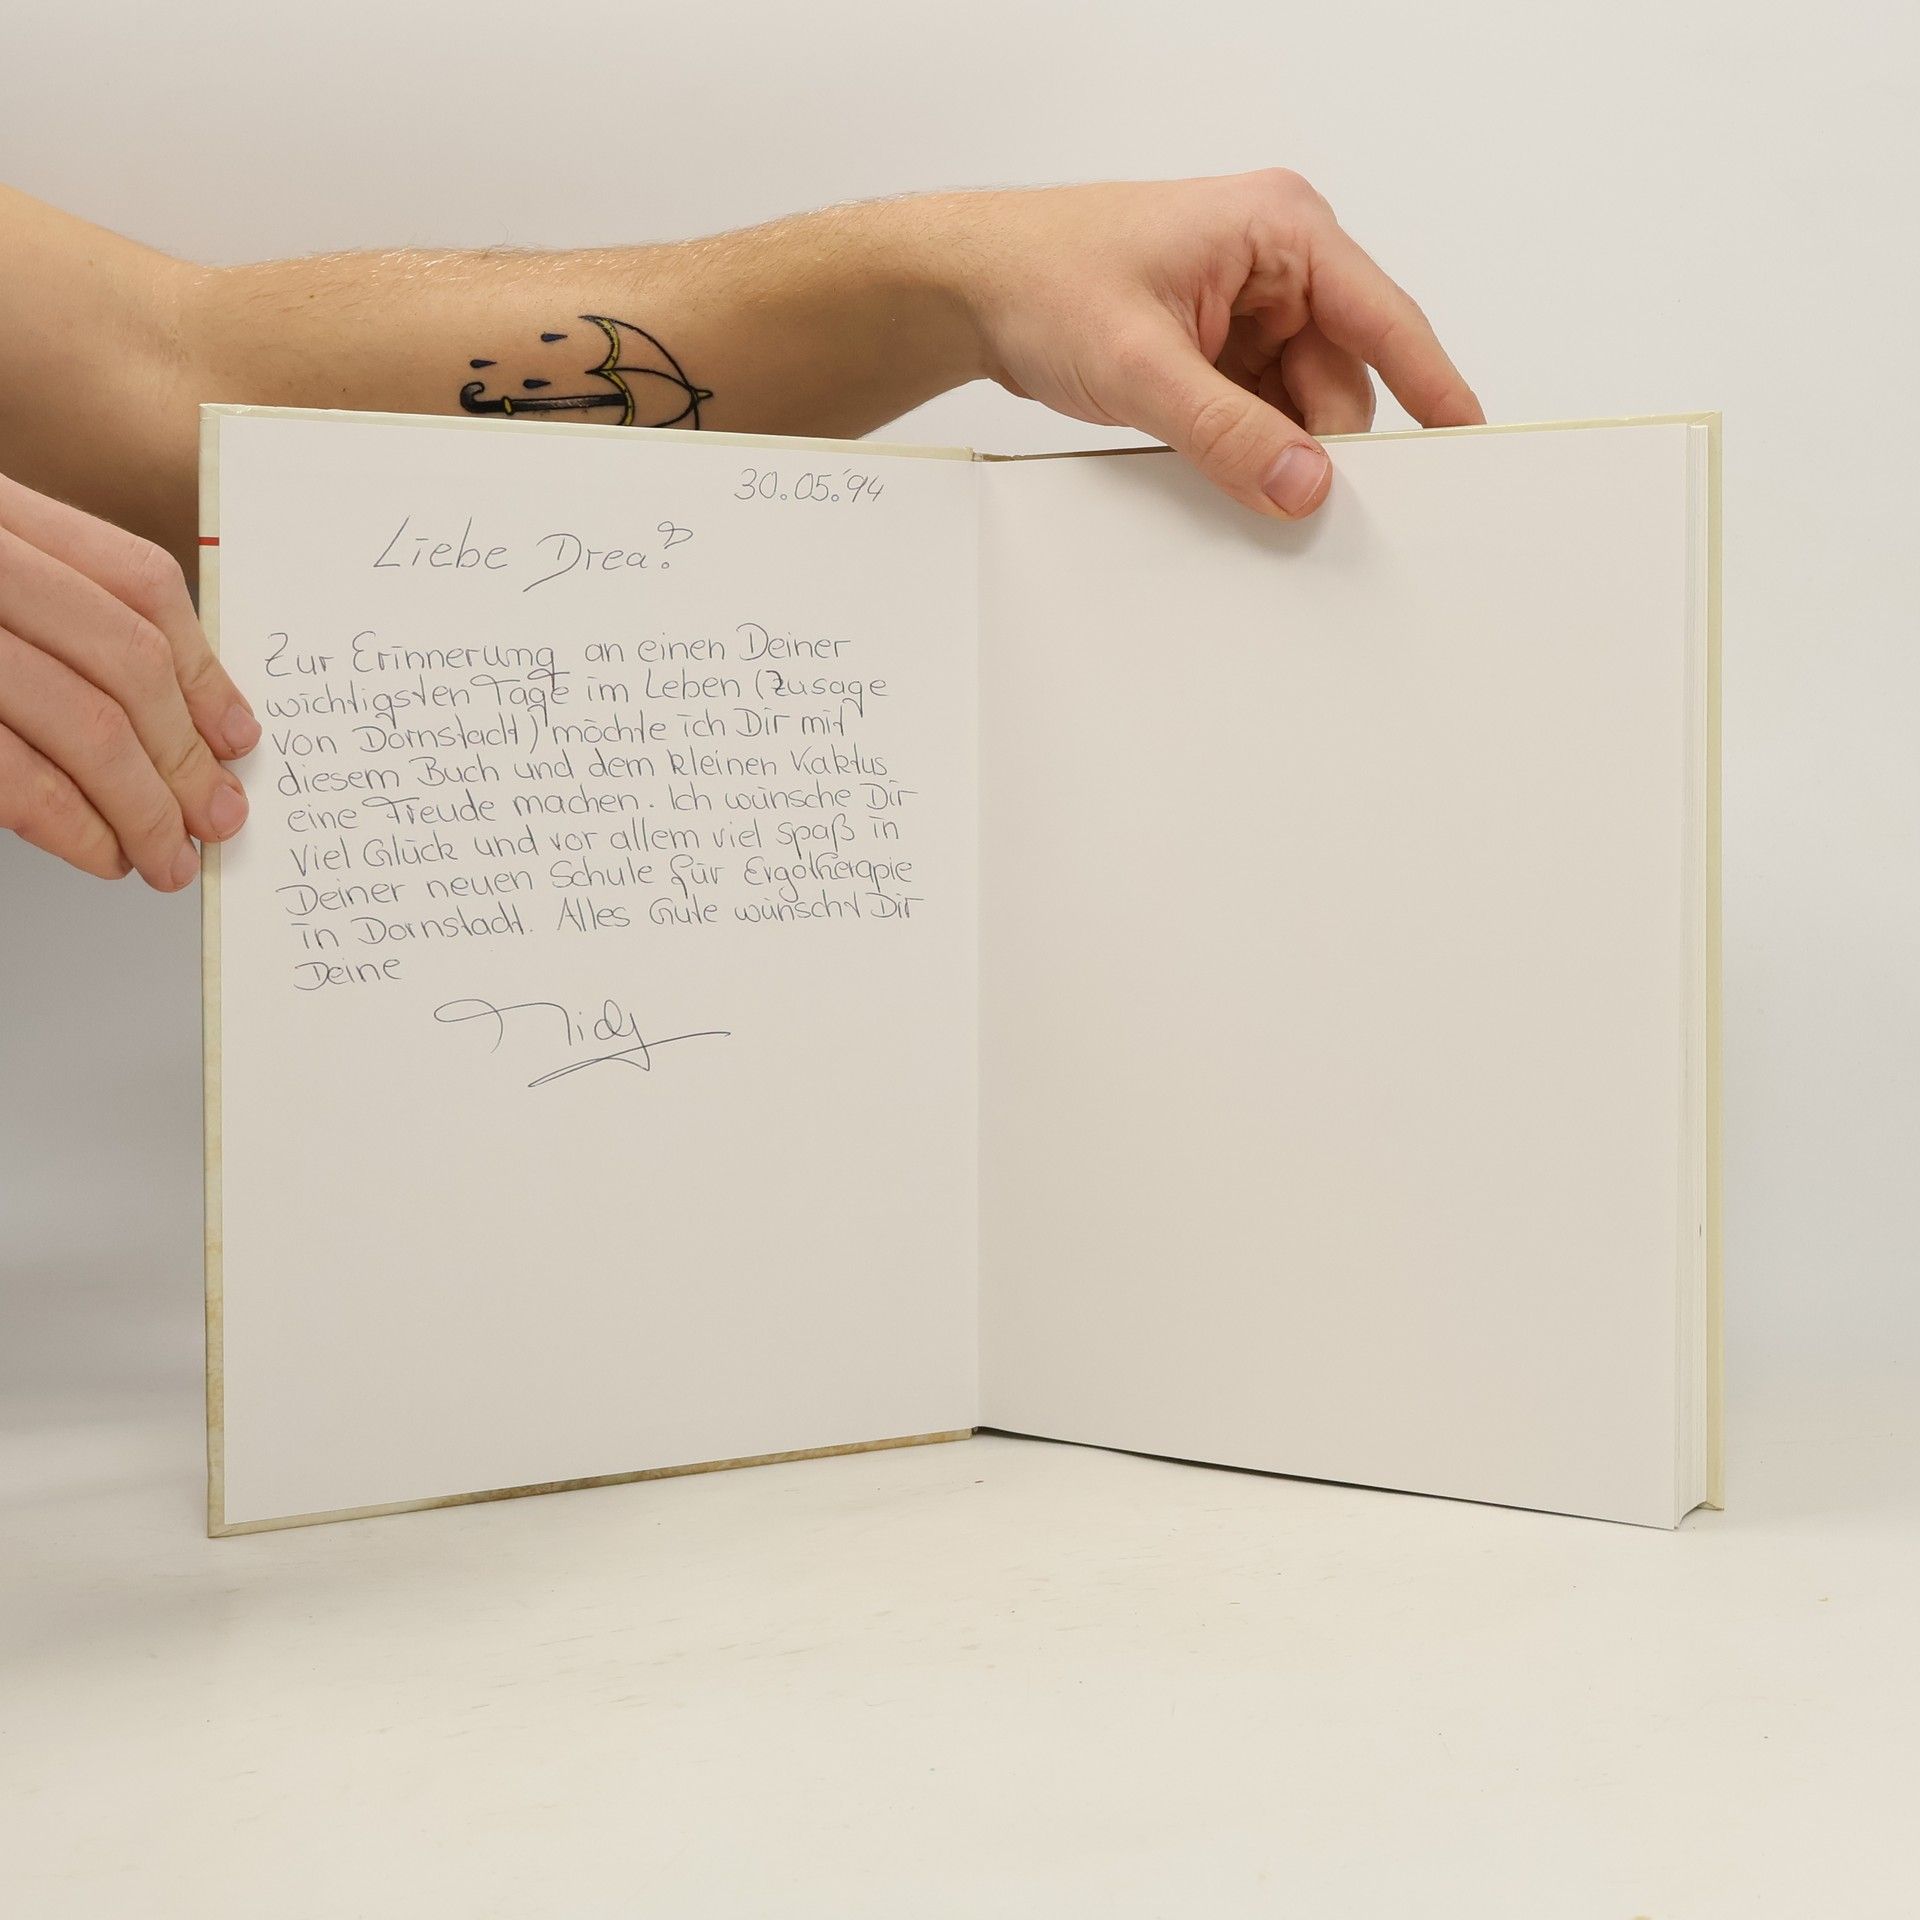 30.05.'94
Liebe Drea!
Zur Erinnerung an einen Deiner
wichtigsten Tage im Leben (Zusage
von Dornstadt) möchte ich Dir mit
diesem Buch und dem kleinen Kaktus
eine Freude machen. Ich wünsche Dir
viel Glück und vor allem viel Spaß in
Deiner neuen Schule für Ergotherapie
in Dornstadt. Alles Gute wünscht Dir
Deine